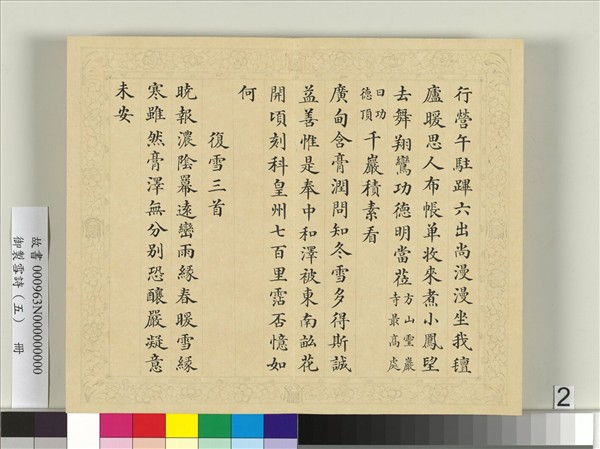 行營午駐蹕六出尚漫漫坐我氊
廬暖思人布帳單收來煮小鳳望
去舞翔鸞功德明當莅方山靈巖寺最高處
曰功德頂千巖積素看
廣甸含膏潤問知冬雪多得斯誠
益善惟是奉中和澤被東南畝花
開頃刻科皇州七百里霑否憶如
何
復雪三首
晚報濃陰羃遠巒雨緣春暖雪緣
寒雖然膏澤無分別恐釀嚴凝意
未安
故書 000963N000000000
御製雪詩(五) 冊
2